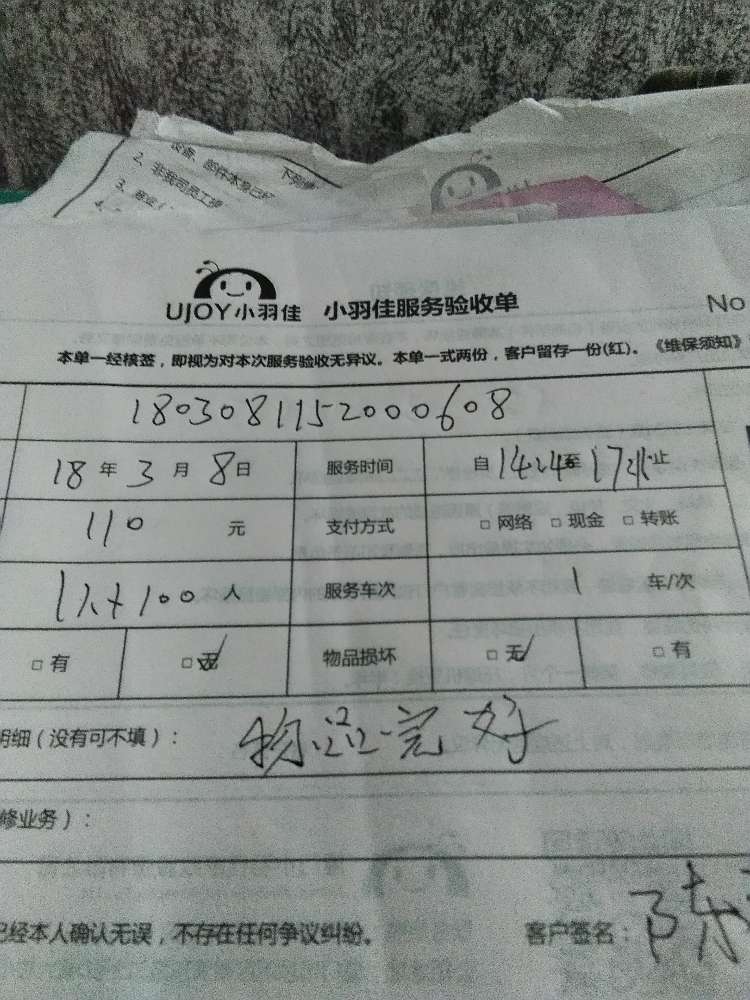 2、非我司员工提
下列情
UJOY小羽佳 小羽佳服务验收单
No
本单一经核签，即视为对本次服务验收无异议。本单一式两份，客户留存一份(红)。《维保须知》
1803081152000608
18年3月8日 服务时间 自14:24至 止
110 元 支付方式 □网络 □现金 □转账
人 服务车次 1 车/次
□有 □无 物品损坏 □无 □有
明细（没有可不填）： 物品完好
修业务）：
已经本人确认无误，不存在任何争议纠纷。 客户签名：陈